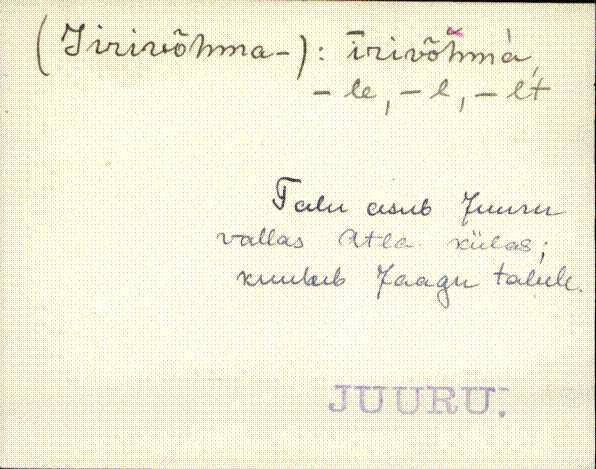 (Iirivõhma-): īrivõhmà,
- le, - l, - lt
Talu asub Juuru
vallas Atla külas;
kuulub Jaagu talule.
JUURU.